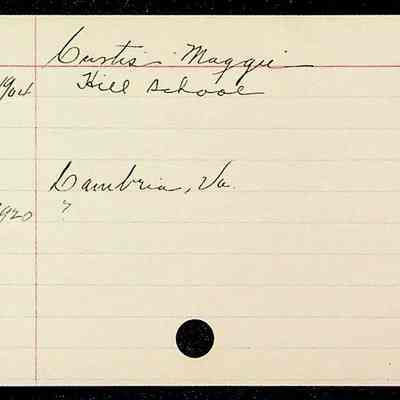 Curtis Maggie
1904 Hill School
Cambria, Va.
1920 ?